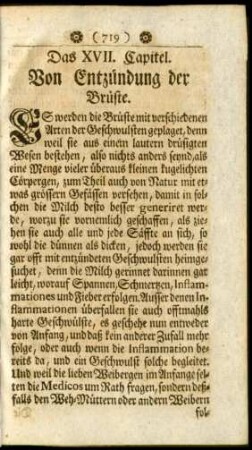 ( 719 )
Das XVII. Capitel.
Von Entzündung der
Brüste.
ES werden die Brüste mit verschiedenen
Arten der Geschwulsten geplaget, denn
weil sie aus einem lautern drüsigten
Wesen bestehen, also nichts anders seynd, als
eine Menge vieler überaus kleinen kugelichten
Cörpergen, zum Theil auch von Natur mit et-
was grössern Gefässen versehen, damit in sol-
chen die Milch desto besser generiret wer-
de, worzu sie vornemlich geschaffen, als zie-
hen sie auch alle und jede Säffte an sich, so
wohl die dünnen als dicken, jedoch werden sie
gar offt mit entzündeten Geschwulsten heimge-
suchet, denn die Milch gerinnet darinnen gar
leicht, worauf Spannen, Schmertzen, Inflam-
mationes und Fieber erfolgen. Ausser denen In-
flammationen überfallen sie auch offtmahls
harte Geschwülste, es geschehe nun entweder
von Anfang, und daß kein anderer Zufall mehr
folge, oder auch wenn die Inflammation be-
reits da, und ein Geschwulst solche begleitet.
Und weil die lieben Weibergen im Anfange sel-
ten die Medicos um Rath fragen, sondern deß-
falls den Weh-Müttern oder andern Weibern
fol-